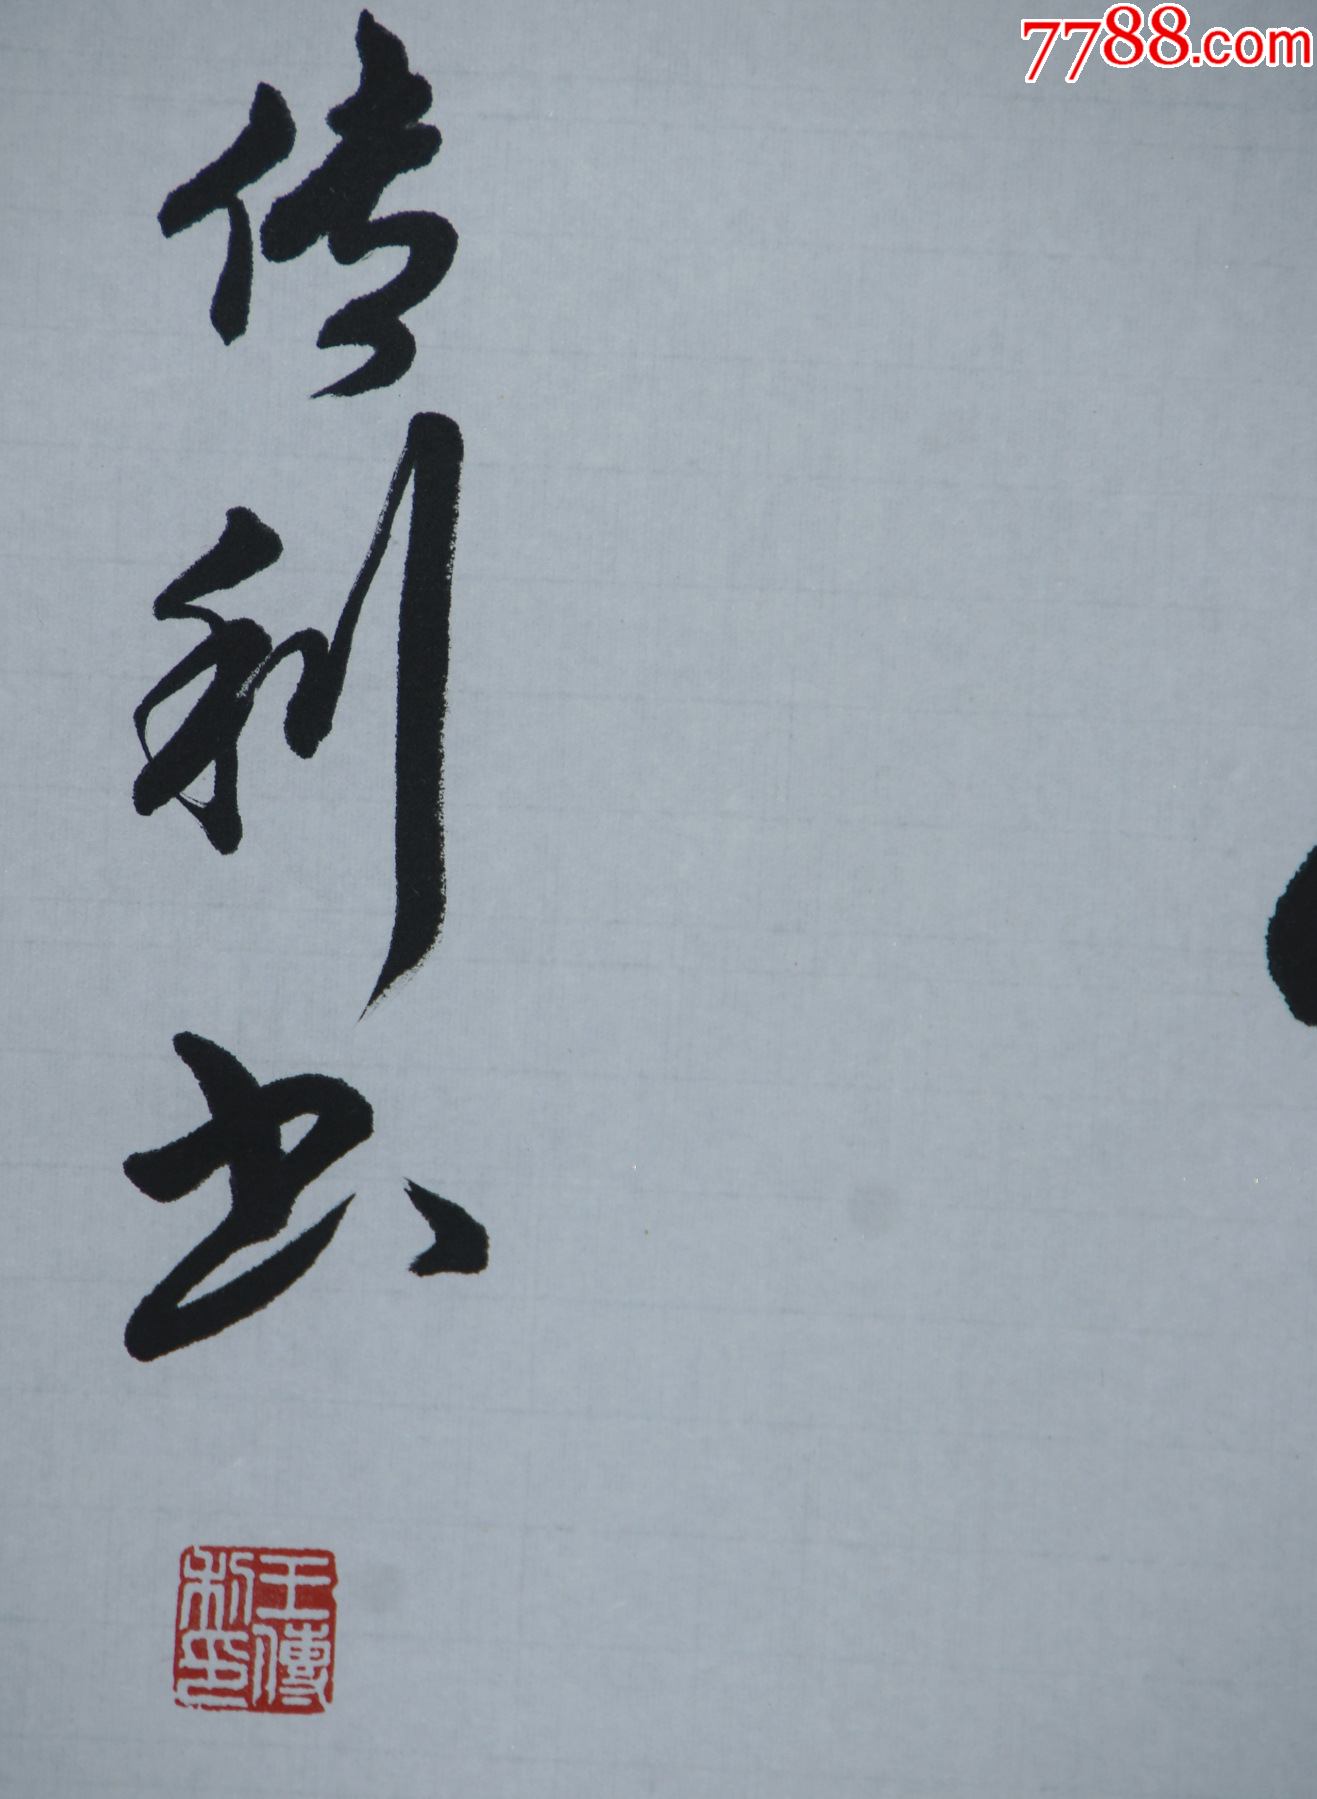 7788.com
传利书
王傳利印